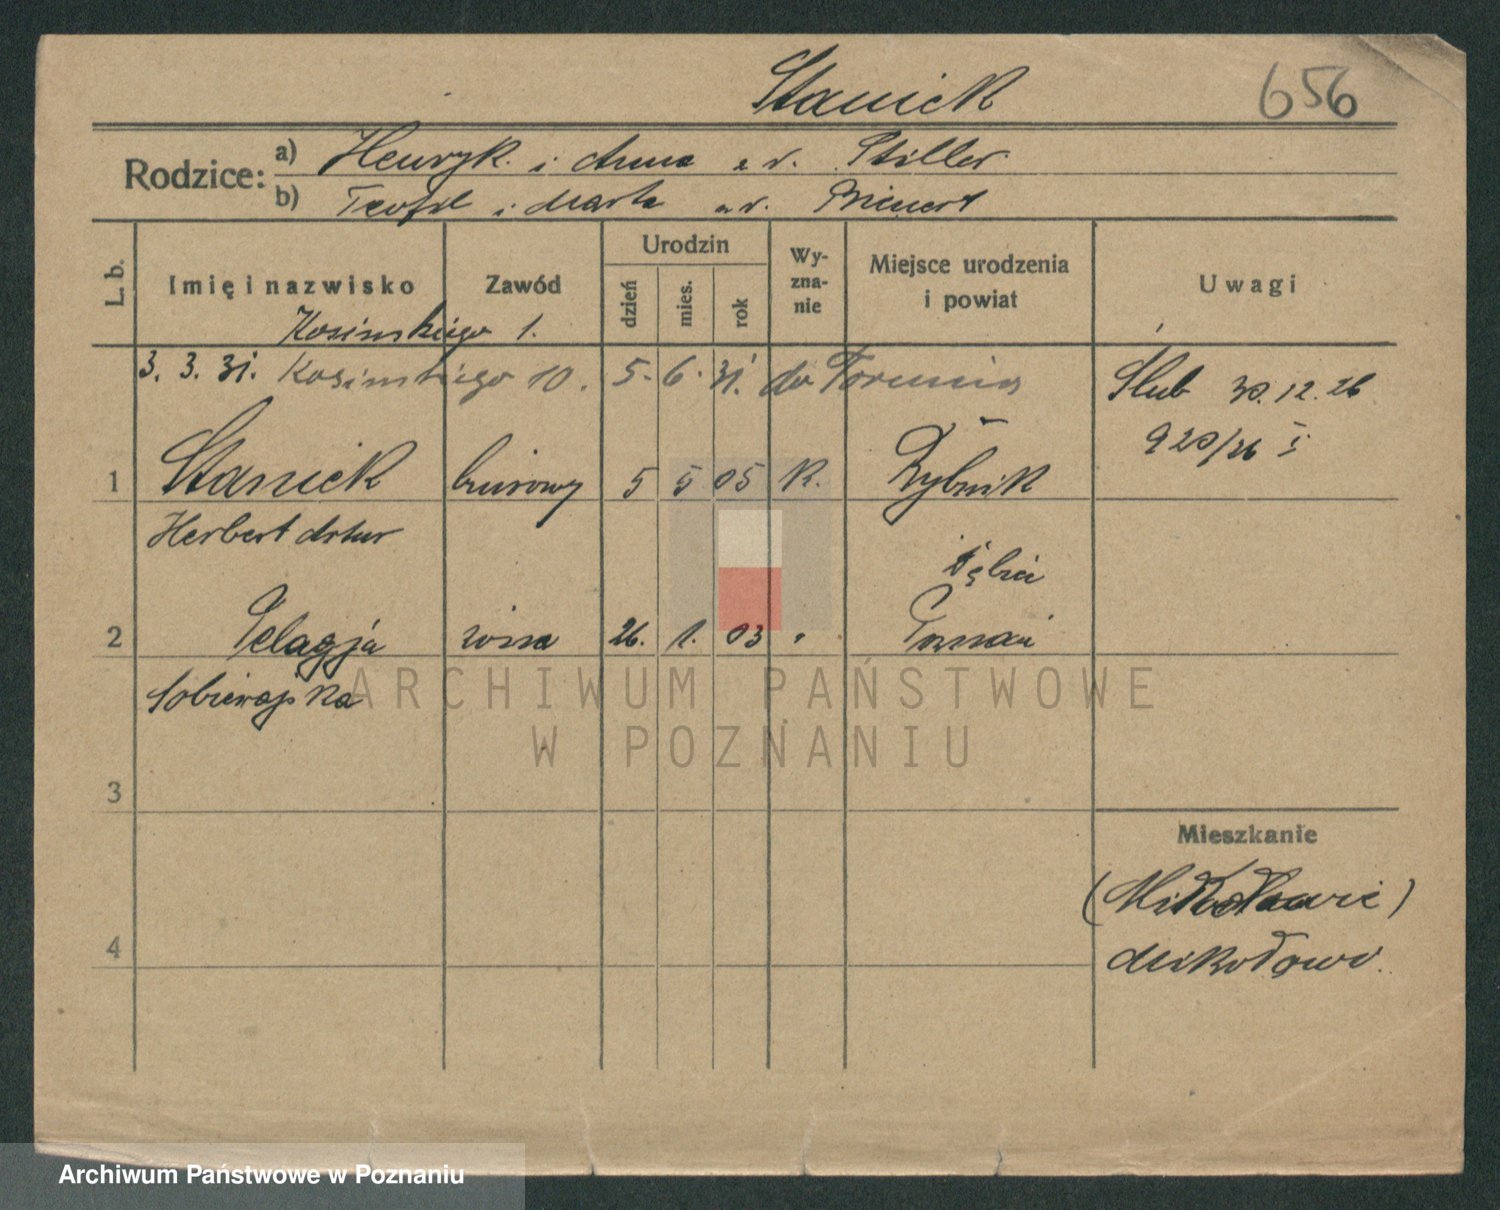 Stanick 656
Rodzice: a) Henryk i Anna z d. Stiller
b) Teofil i Marta z d. Bienert
L. b. Imię i nazwisko Zawód Urodzin dzień mies. rok Wyznanie Miejsce urodzenia i powiat Uwagi
Kosinskiego 1.
3. 3. 31. Kosinskiego 10. 5. 6. 31. do Torunia
Ślub 30.12.26
920/26 I
1 Stanick biurowy 5 5 05 K. Rybnik
Herbert Artur
Dębiec
2 Pelagja żona 26. 1. 03 " Poznań
Sobierajska
3
Mieszkanie
4
Mikołowie.
ARCHIWUM PAŃSTWOWE
W POZNANIU
Archiwum Państwowe w Poznaniu